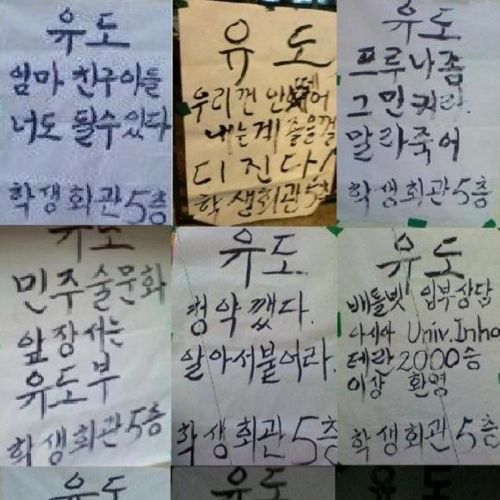 유도
엄마 친구아들
너도 될수있다
학생회관 5층
유도
우리껀 안떼어
내는게 좋을껄
디진다!
학생회관 5층
유도
프루나좀
그만켜라.
말라죽어
학생회관 5층
유도
민주술문화
앞장서는
유도부
학생회관 5층
유도
청약깼다.
알아서붙어라.
학생회관 5층
유도
배틀넷 입부상담
아시아 Univ.Inha
테란 2000승
이상 환영
학생회관 5층
유도
유도
유도